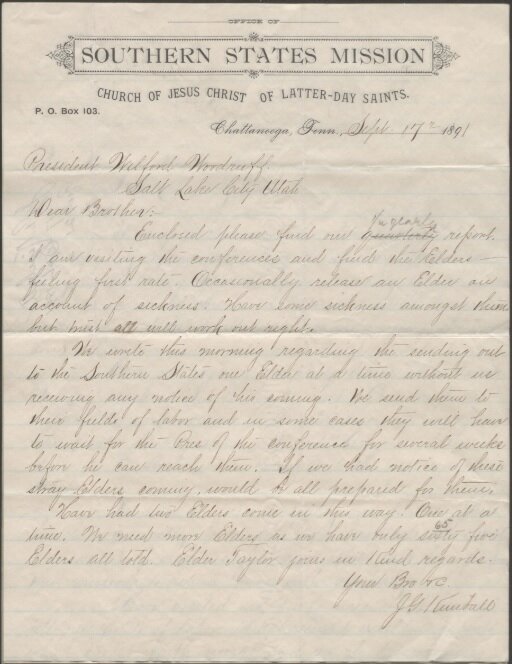 OFFICE OF
SOUTHERN STATES MISSION
CHURCH OF JESUS CHRIST OF LATTER-DAY SAINTS.
P. O. Box 103.
Chattanooga, Tenn., Sept. 17" 1891
President Wilford Woodruff.
Salt Lake City Utah
Dear Brother:
Enclosed please find our quarterly report.
I am visiting the conferences and find the Elders
feeling first rate. Occasionally release an Elder on
account of sickness. Have some sickness amongst them
but trust all will work out right.
We wrote this morning regarding the sending out
to the Southern States one Elder at a time without us
receiving any notice of his coming. We send them to
their fields of labor and in some cases they will have
to wait for the Pres of the conference for several weeks
before he can reach them. If we had notice of these
stray Elders coming, would be all prepared for them.
Have had two Elders come in this way. One at a
time. We need more Elders as we have only
65
sixty five
Elders all told. Elder Taylor joins in Kind regards.
Your Bro &c.
J G Kimball